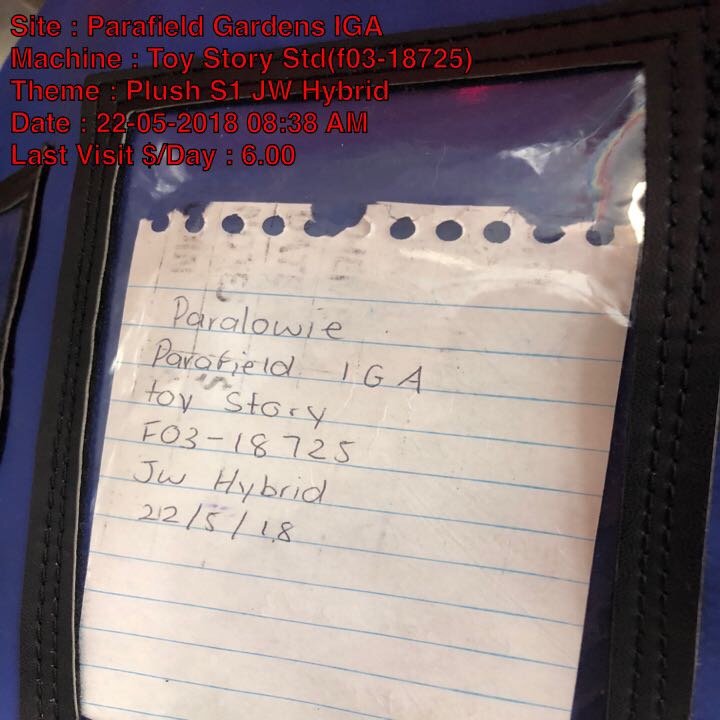 Site : Parafield Gardens IGA
Machine : Toy Story Std(f03-18725)
Theme : Plush S1 JW Hybrid
Date : 22-05-2018 08:38 AM
Last Visit $/Day : 6.00
Paralowie
Parafield IGA
toy Story
F03-18725
Jw Hybrid
22/5/18